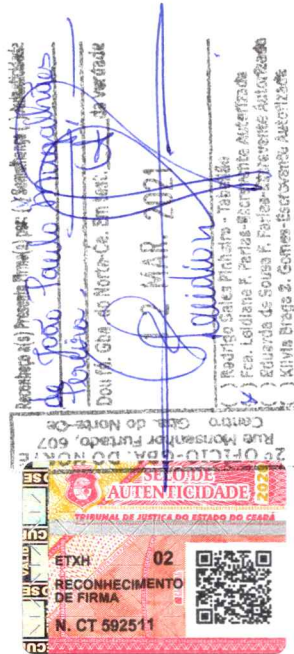 Reconheço a(s) Presente firma(s) por:
de João Paulo Magalhães
Pereira
Dou fé. Gba do Norte-Ce. Em test. da verdade
MAR. 2021
Leidiane
( ) Rodrigo Sales Pinheiro - Tabelião
( ) Fca. Leidiane F. Farias-Escrevente Autorizada
( ) Eduarda de Sousa F. Farias-Escrevente Autorizada
( ) Kilvia Braga S. Gomes-Escrevente Autorizada
2º OFÍCIO-GBA. DO NORTE
Rua Monsenhor Furtado, 607
Centro
Gba. do Norte-Ce
SELO DE
AUTENTICIDADE
2021
TRIBUNAL DE JUSTIÇA DO ESTADO DO CEARÁ
ETXH 02
RECONHECIMENTO
DE FIRMA
N. CT 592511